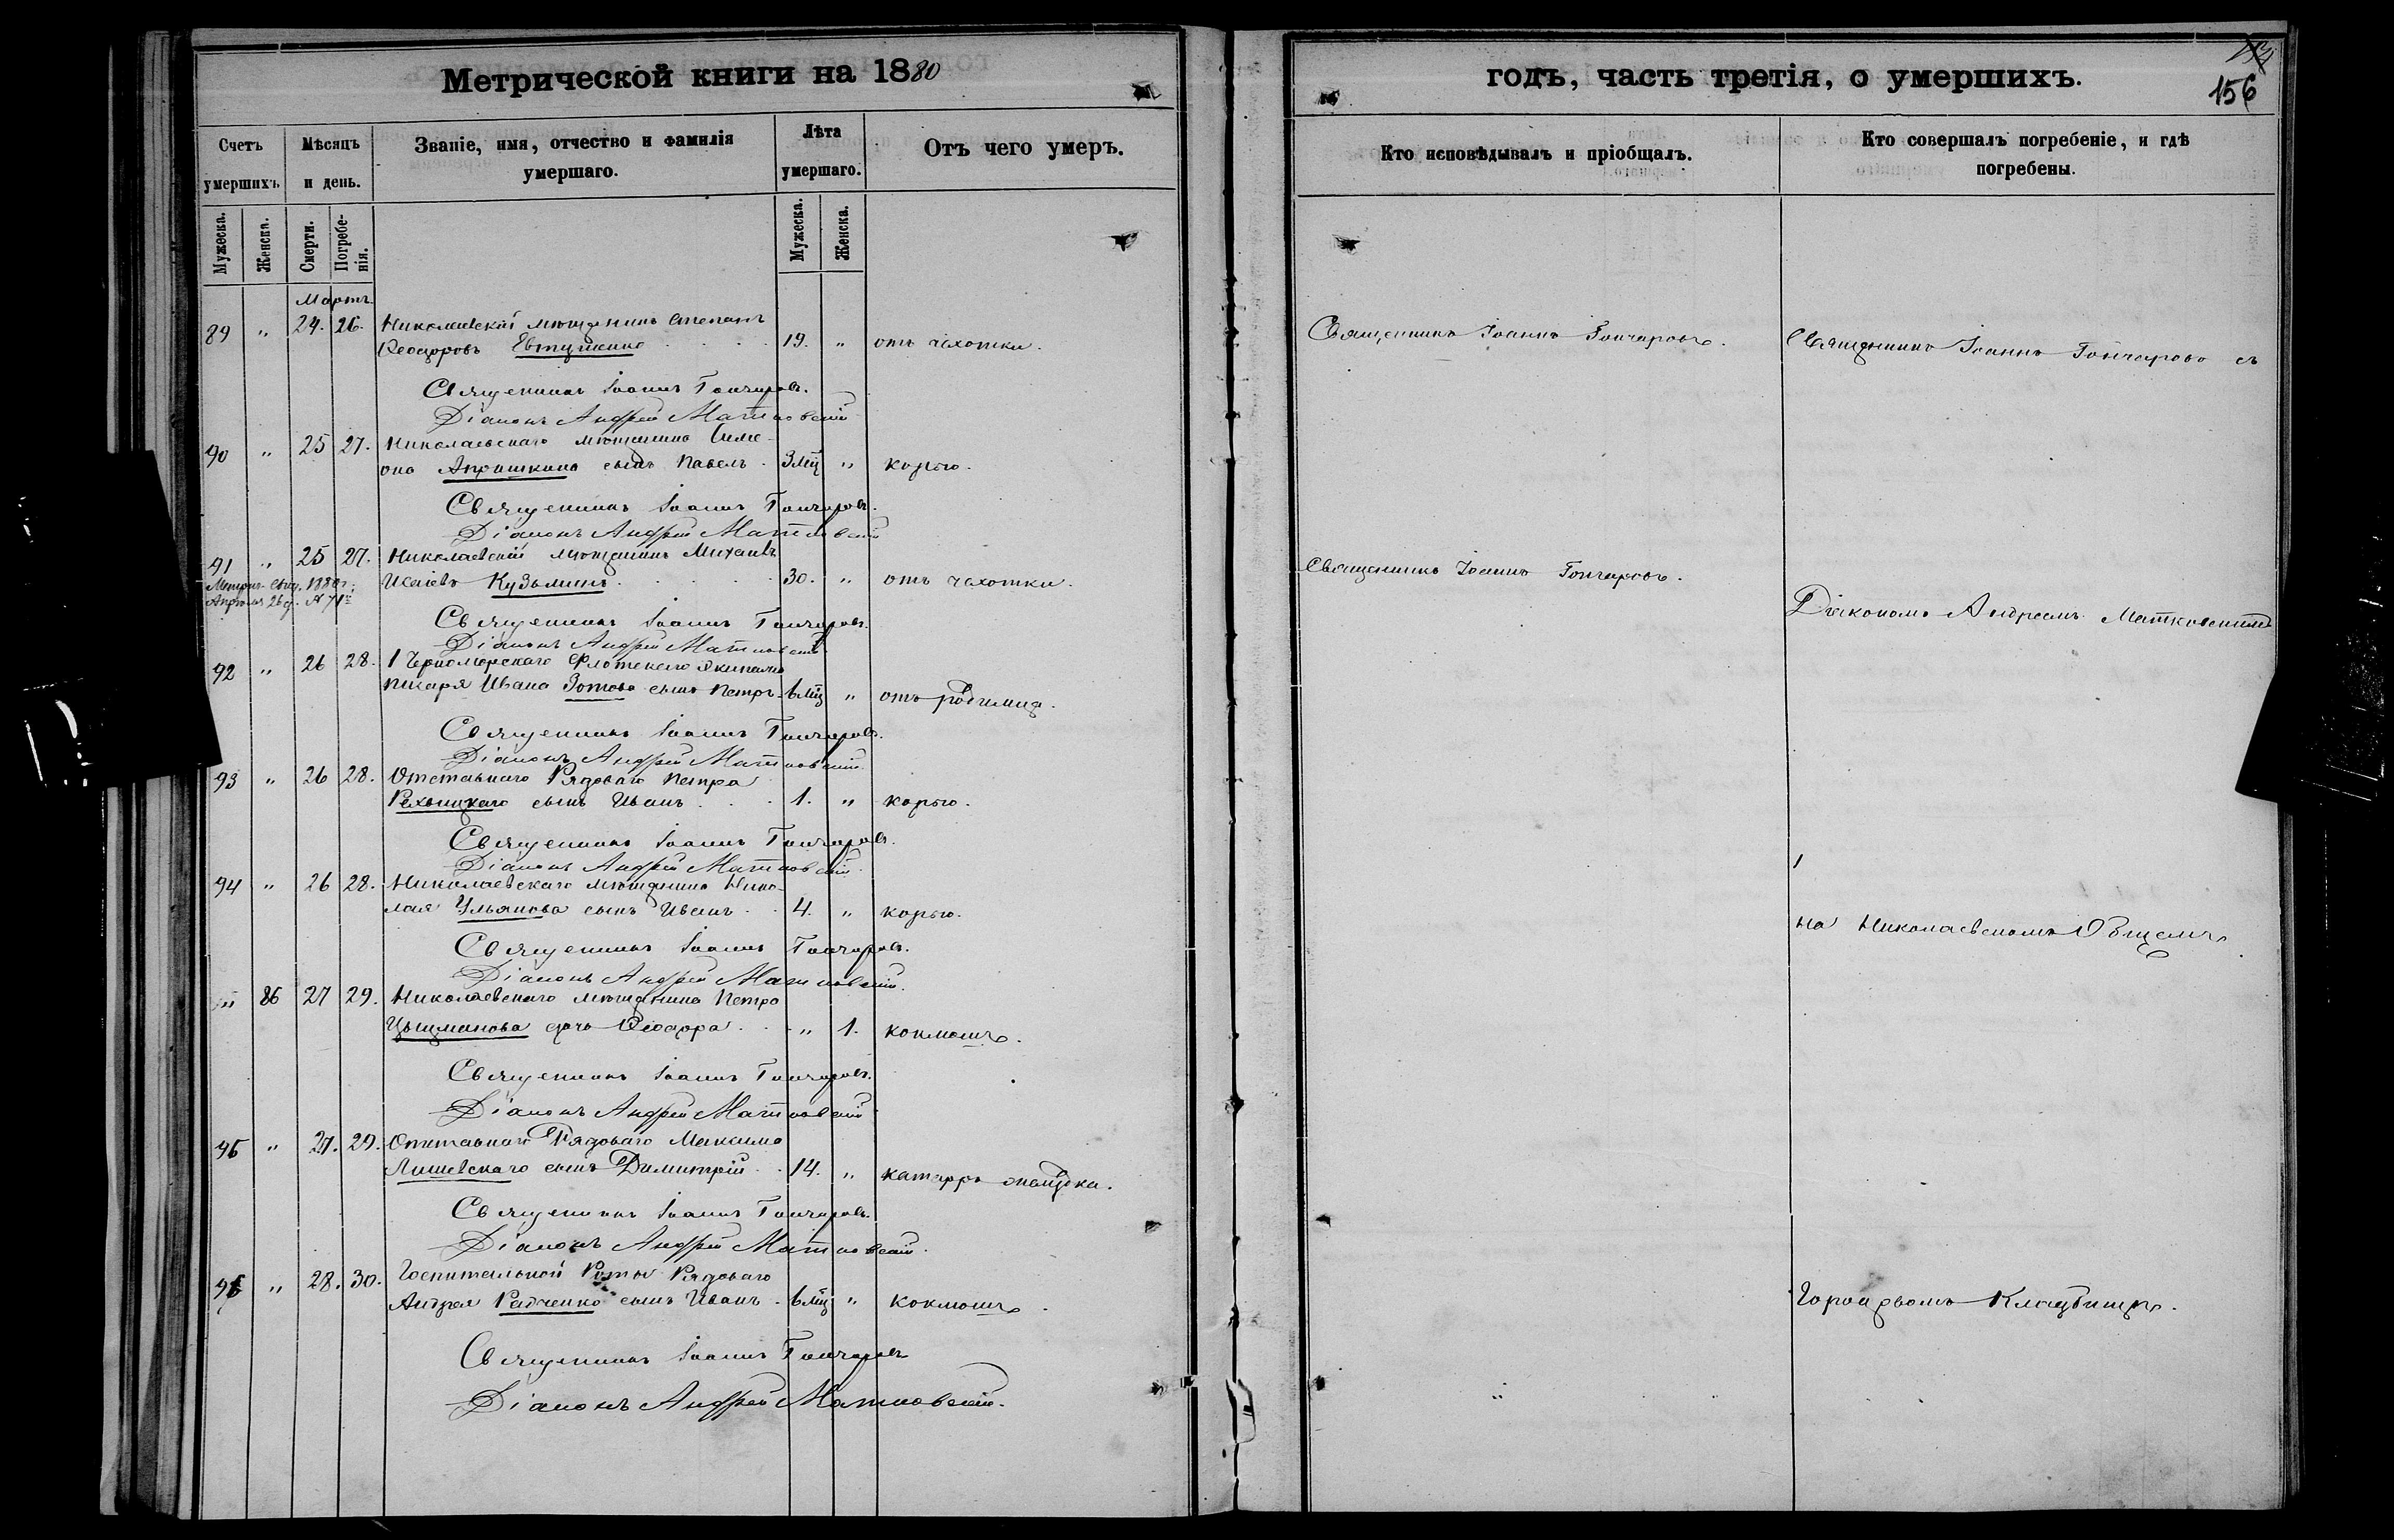 Метрической книги на 1880
годъ, часть третія, о умершихъ.
156
Счетъ умершихъ.
Мѣсяцъ и день.
Званіе, имя, отчество и фамилія умершаго.
Лѣта умершаго.
Отъ чего умеръ.
Кто исповѣдывалъ и пріобщалъ.
Кто совершалъ погребеніе, и гдѣ погребены.
Мужеска.
Женска.
Смерти.
Погребенія.
Мужеска.
Женска.
Мартъ.
89 " 24. 26. Николаевскій мѣщанинъ Степанъ
Ѳеодоровъ Евтушкинъ 19. " отъ чахотки.
Священникъ Іоаннъ Гончаровъ.
Священникъ Іоаннъ Гончаровъ съ
Священникъ Іоаннъ Гончаровъ.
Діаконъ Андрей Матковскій
90 " 25 27. Николаевскаго мѣщанина Симе-
она Апрышкина сынъ Павелъ. 3 мц " корью.
Священникъ Іоаннъ Гончаровъ.
Діаконъ Андрей Матковскій
91 " 25 27. Николаевскій мѣщанинъ Михаилъ
Исаіевъ Кузьминъ. 30. " отъ чахотки.
Священникъ Іоаннъ Гончаровъ.
Метрич. свид. 1880 г.
Апрѣля 26 д. №
Священникъ Іоаннъ Гончаровъ.
Діакономъ Андреемъ Матковскимъ
Діаконъ Андрей Матковскій
92 " 26 28. 1 Черноморскаго Флотскаго Экипажа
писаря Ивана Зотова сынъ Петръ. 6 мц " отъ родимца.
Священникъ Іоаннъ Гончаровъ.
Діаконъ Андрей Матковскій.
93 " 26 28. Отставнаго Рядоваго Петра
сынъ Иванъ 1. " корью.
Священникъ Іоаннъ Гончаровъ.
Діаконъ Андрей Матковскій.
94 " 26 28. Николаевскаго мѣщанина Нико-
лая Ульянова сынъ Иванъ 4. " корью.
на Николаевскомъ Общемъ
Священникъ Іоаннъ Гончаровъ.
Діаконъ Андрей Матковскій.
" 86 27 29. Николаевскаго мѣщанина Петра
дочь Ѳеодора " 1. коклюшъ.
Священникъ Іоаннъ Гончаровъ.
Діаконъ Андрей Матковскій
95 " 27. 29. Отставнаго Рядоваго Максима
Лишевскаго сынъ Димитрій 14. " катарръ желудка.
Священникъ Іоаннъ Гончаровъ.
Діаконъ Андрей Матковскій.
96 " 28. 30. Госпитальной Роты Рядоваго
Андрея Радченко сынъ Иванъ. 6 мц " коклюшъ.
Городскомъ Кладбищѣ.
Священникъ Іоаннъ Гончаровъ
Діаконъ Андрей Матковскій.